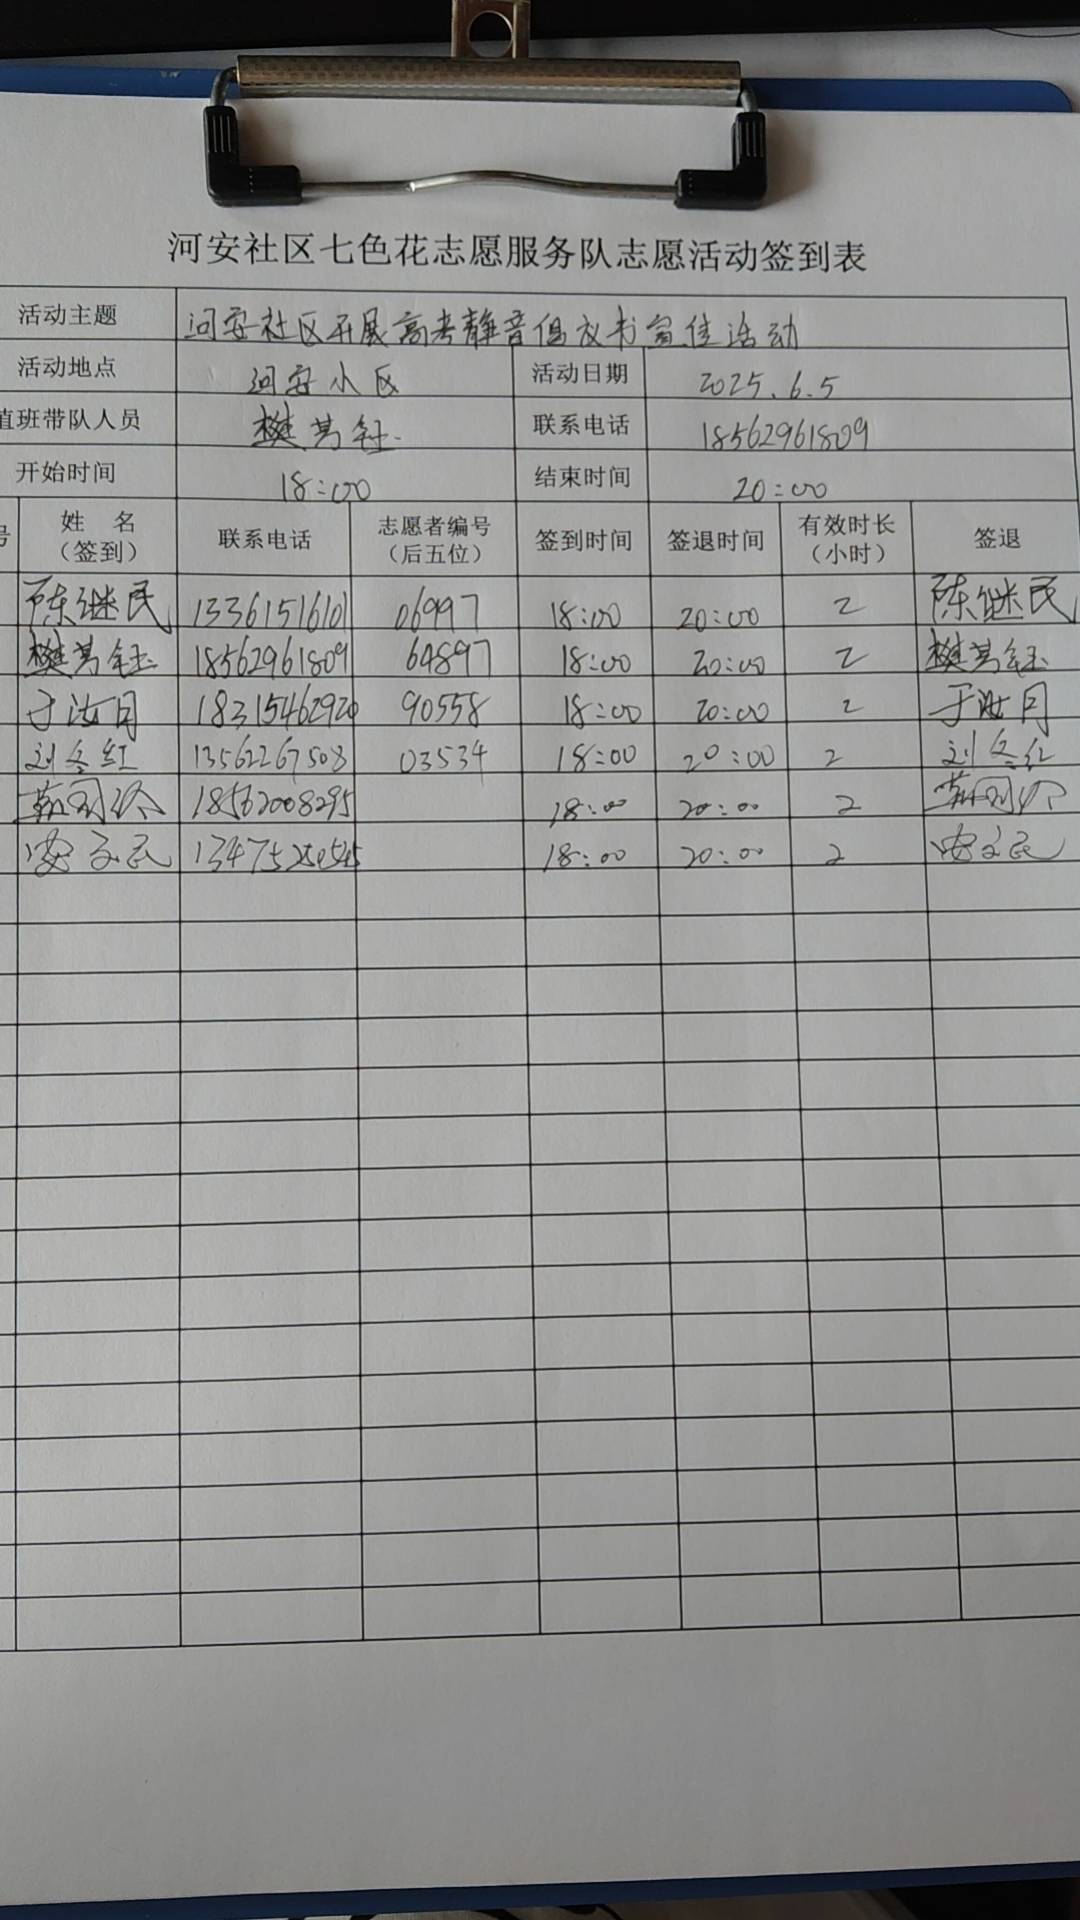 河安社区七色花志愿服务队志愿活动签到表
活动主题 河安社区开展高考静音倡议书宣传活动
活动地点 河安小区 活动日期 2025.6.5
值班带队人员 樊芳钰 联系电话 18562961809
开始时间 18:00 结束时间 20:00
号 姓 名 联系电话 志愿者编号 签到时间 签退时间 有效时长 签退
（签到） （后五位） （小时）
陈继民 13361516101 06997 18:00 20:00 2 陈继民
樊芳钰 18562961809 64897 18:00 20:00 2 樊芳钰
于汝月 18315462920 90558 18:00 20:00 2 于汝月
刘冬红 13562267508 03534 18:00 20:00 2 刘冬红
18562008295 18:00 20:00 2
安文民 18:00 20:00 2 安文民